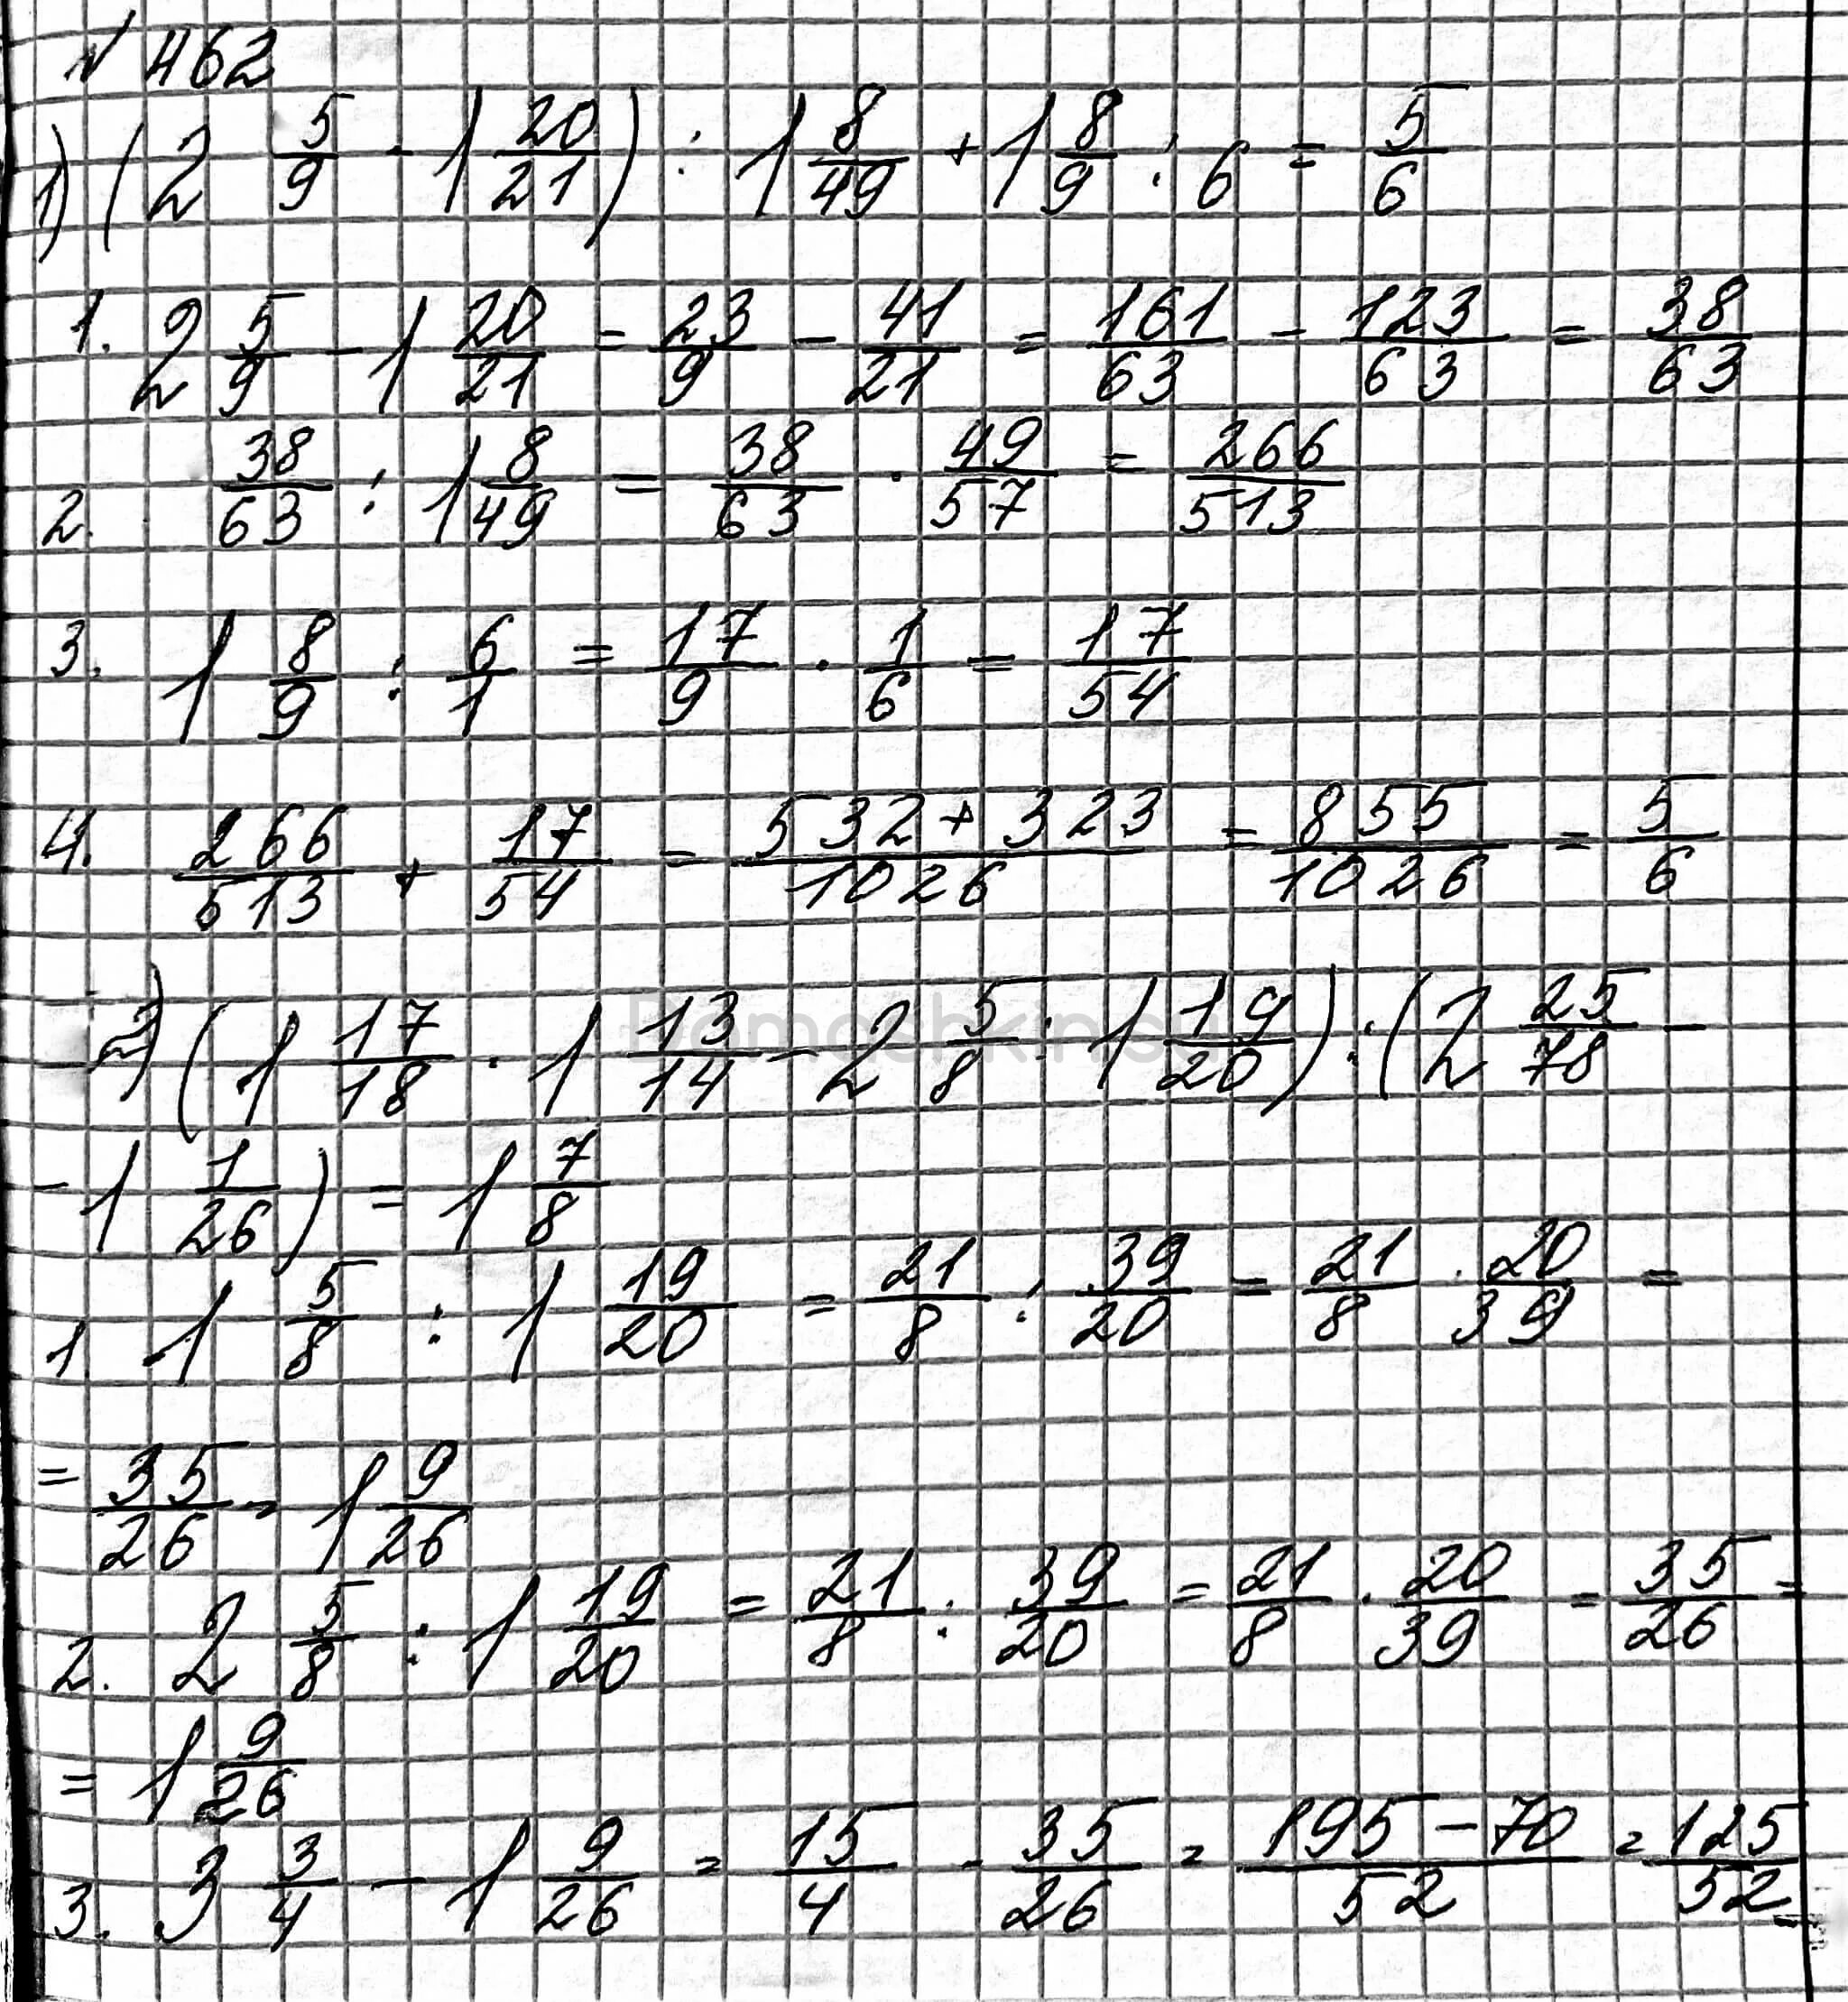 № 462
1) (2 5/9 - 1 20/21) : 1 8/49 + 1 8/9 : 6 = 5/6
1. 2 5/9 - 1 20/21 = 23/9 - 41/21 = 161/63 - 123/63 = 38/63
2. 38/63 : 1 8/49 = 38/63 · 49/57 = 266/513
3. 1 8/9 : 6/1 = 17/9 · 1/6 = 17/54
4. 266/513 + 17/54 = (532 + 323)/1026 = 855/1026 = 5/6
2) (1 17/18 · 1 13/14 - 2 5/8 : 1 19/20) : (2 25/78 -
- 1 1/26) = 1 7/8
1. 1 5/8 : 1 19/20 = 21/8 : 39/20 = 21/8 · 20/39 =
= 35/26 = 1 9/26
2. 2 5/8 : 1 19/20 = 21/8 : 39/20 = 21/8 · 20/39 = 35/26 =
= 1 9/26
3. 3 3/4 - 1 9/26 = 15/4 - 35/26 = (195 - 70)/52 = 125/52 =